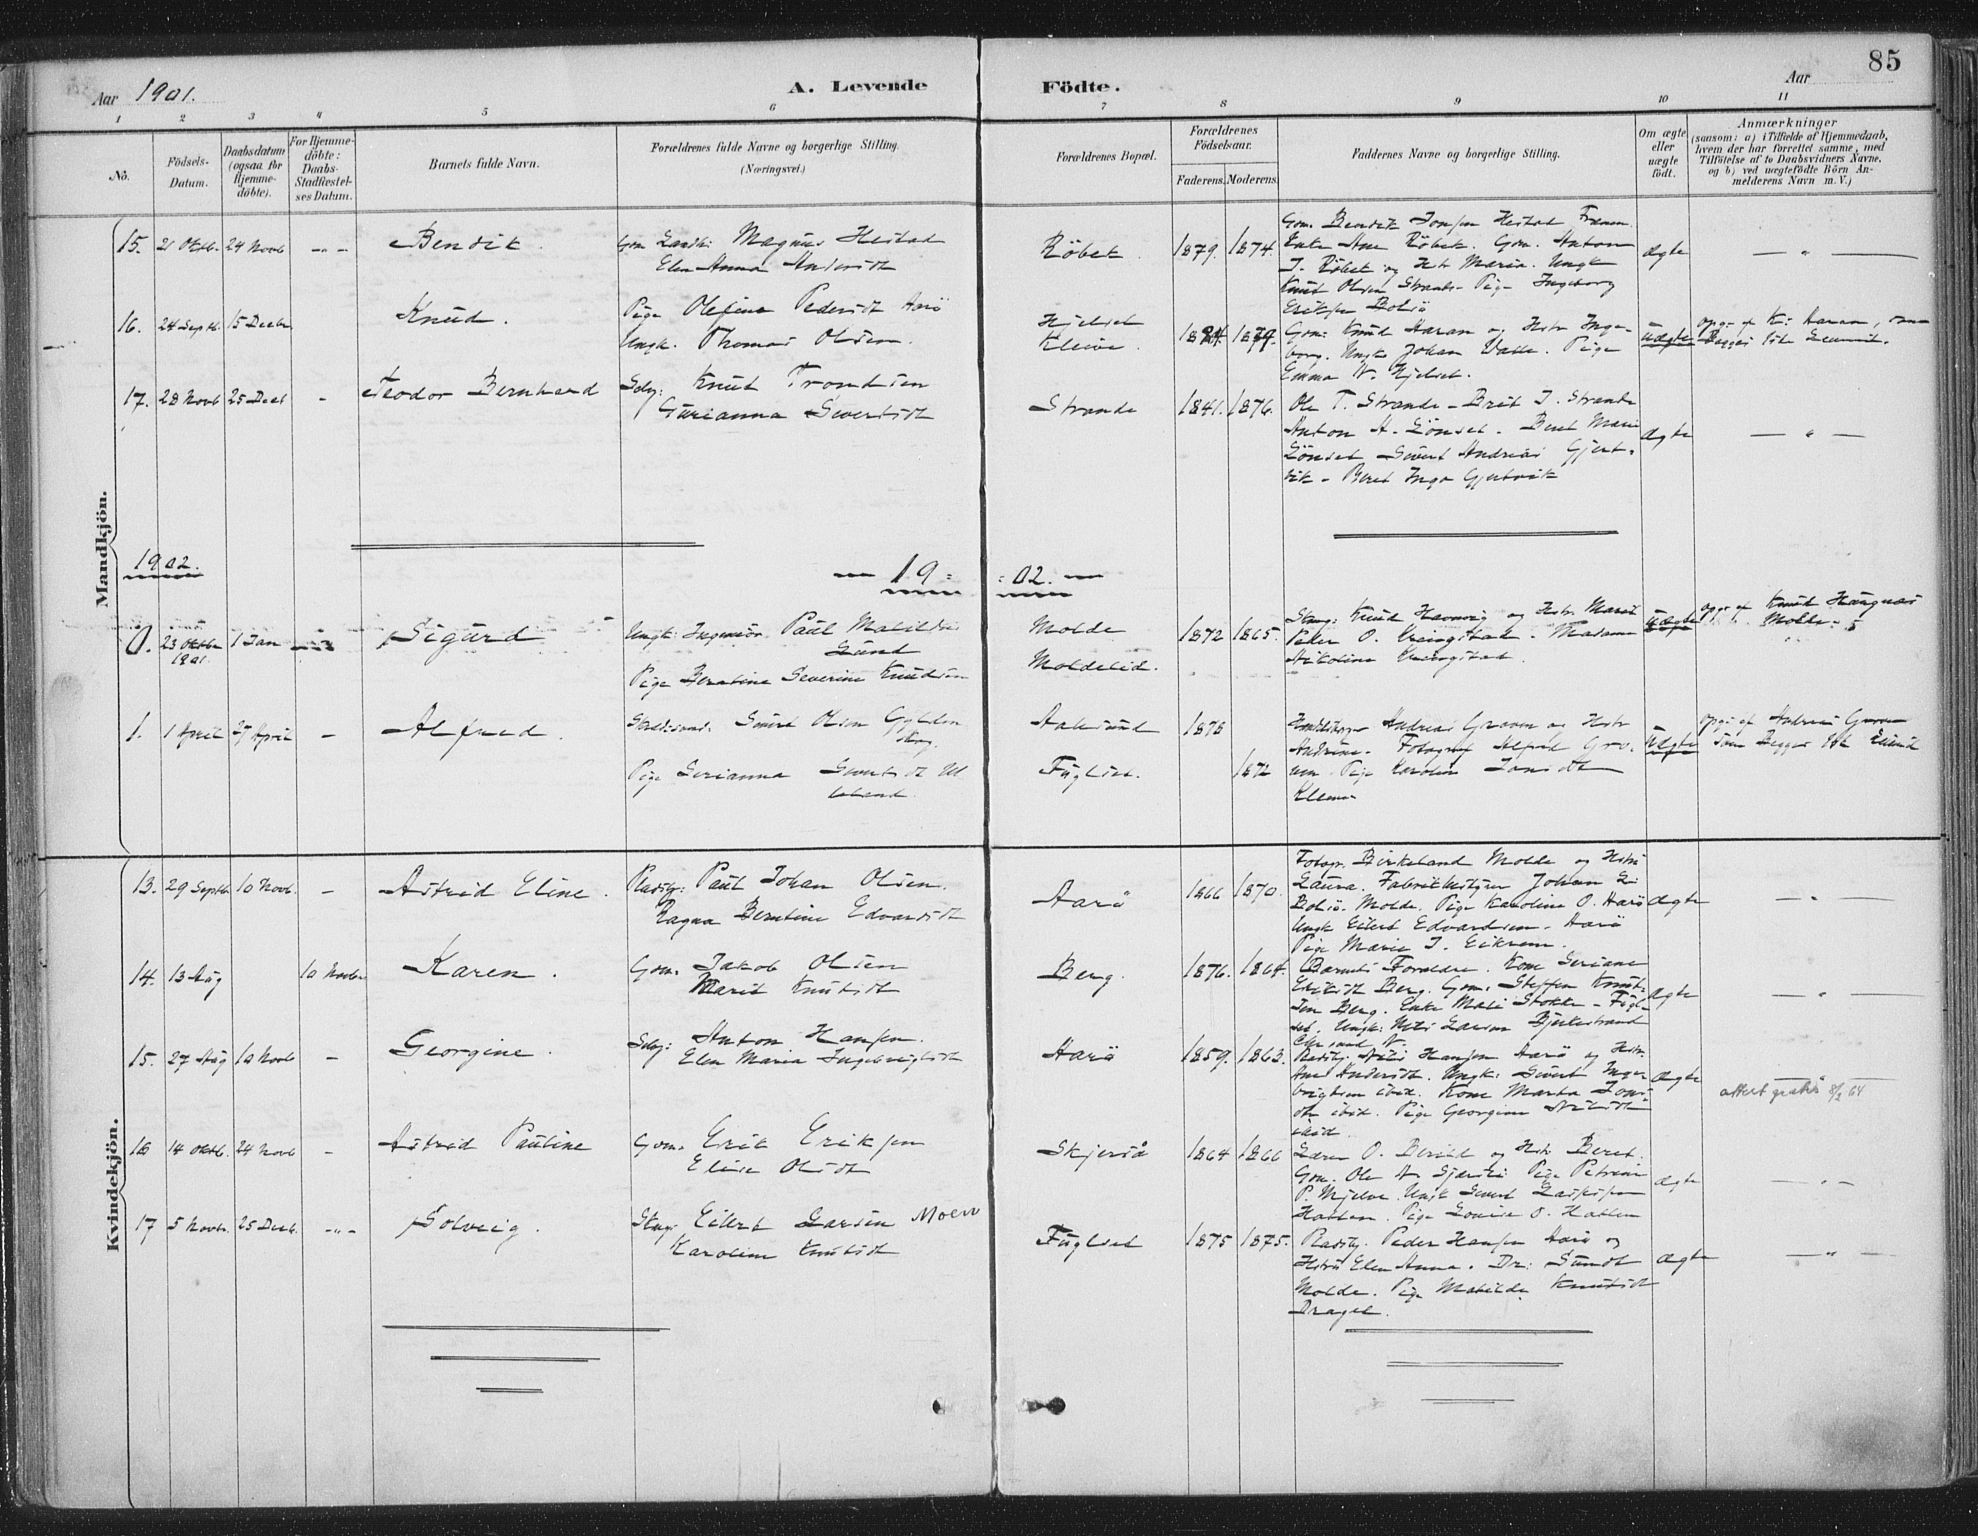 85
Aar 1901. A. Levende Födte. Aar
1 2 3 4 5 6 7 8 9 10 11
No.
Födsels-
Datum.
Daabsdatum
(ogsaa for
Hjemme-
döbte).
For Hjemme-
döbte:
Daabs-
Stadfæstel-
ses Datum.
Barnets fulde Navn.
Forældrenes fulde Navne og borgerlige Stilling.
(Næringsvei.)
Forældrenes Bopæl.
Forældrenes
Födselsaar.
Faderens. Moderens.
Faddernes Navne og borgerlige Stilling.
Om ægte
eller
uægte
födt.
Anmærkninger
(saasom: a) i Tilfælde af Hjemmedaab,
hvem der har forrettet samme, med
Tilföielse af to Daabsvidners Navne,
og b) ved uægtefödte Börn An-
melderens Navn m. V.)
Mandkjön.
15. 21 Oktb. 24 Novb Bendik.
Magnus Hestad
Elen Anna Andersdt
Röbek. 1879. 1874.
Gm. Bendik Jonsen Hestad Fræna
Enke Ane Röbek. Gm. Anton
J. Röbek og Hstr Maria. Ungk
Knut Olsen Strande - Pige Ingeborg
Eriksen Bolsö
ægte
16. 24 Septb 15 Decbr Knud.
Pige Olefine Pedersdt Arö
Ungk. Thomas Olsen.
Hjelset
Kleive.
Gm: Knud Haran og Hstr Inge-
borg. Ungk Johan Valle. Pige
Emma N. Hjelset.
uægte
opgi af K: Haran, som
17. 28 Novb 25 Decb - Teodor Bernhard
Selv: Knut Trondsen
Gurianna Sivertsdt
Strande 1841. 1876.
Ole T. Strande - Brit J. Strande
Anton A. Lönset. Berit Marie
Lönset - Sivert Andreas Gjert-
vik - Beret Inga Gjertvik
ægte
1902.
19 = = 02.
0. 23 Oktbr 1901 1 Jan Sigurd
Ungk: Ingeniör. Paul Matilds
Lund
Pige Berntine Severine Knudsen
Molde
Moldelid.
1872 1865.
Knud Haavong og Hstr Marit
Peder O. Kringstad. Madame
Nikoline Kringstad.
uægte
opgi af Knud Haugnæs
Molde
1. 1 April 27 April - Alfred.
Sivert Olsen Gylden
skog.
Pige Gurianna Sivertsdt
Aalesund
Fuglset.
1878
1872
Andreas Groven og Hstr
Andrine. Fotograf Alfred Gro-
ven. Pige Karolin Jonsdt
Kleive
uægte
opgi af Andreas Groven
som Begges
Kvindekjön.
13. 29 Septb. 10 Novb. - Astrid Eline.
Pladsg: Paul Johan Olsen.
Ragna Berntine Edvardsdt
Aarö 1866 1870.
Fotogr. Birkeland Molde og Hstru
Laura. Fabrikbestyrer Johan
Bolsö. Molde. Pige Karoline O. Harö
Ungk Eilert Edvardsen. Harö
Pige Marie J. Eikrem.
ægte
14. 13 Aug 10 Novbr Karen.
Gm. Jakob Olsen
Marit Knutsdt
Berg. 1876. 1864.
Barnets Forældre. Kone Seriane
Eriksdt Berg. Gm. Steffen Knut-
sen Berg. Enke Mali Stokke - Fugl-
set. Ungk: Nils Larsen Bjerkestrand
Chrsund N.
ægte
15. 27 Aug 10 Novb - Georgine.
Selv: Anton Hansen.
Elen Maria Ingebrigtsdt
Harö 1859. 1863.
Pladsg. Nils Hansen Aarö og Hstr.
Ane Andersdt. Ungk: Sivert Inge-
brigtsen ibid. Kone Marta Jons-
dt ibid. Pige Georgine Nilsdt
ibid.
ægte
attest gratis 8/2 64
16 14 Oktb. 24 Novb - Astrid Pauline
Gm. Erik Eriksen
Elise Olsdt
Skjerså 1864 1866
Gm. Ole N.
P. Mjelve. Ungk Sivert
Hatlen. Pige Louise O. Hatlen
ægte
17 5 Novb. 25 Decb. Solveig.
Eilert Larsen Moen
Karoline Knutsdt
Fuglset 1875 1875.
Pladsg. Peder Hansen Aarö og
Hstru Elen Anna. Dr: Sundt
Molde. Pige Matilde Knutsdt
Dragset.
ægte